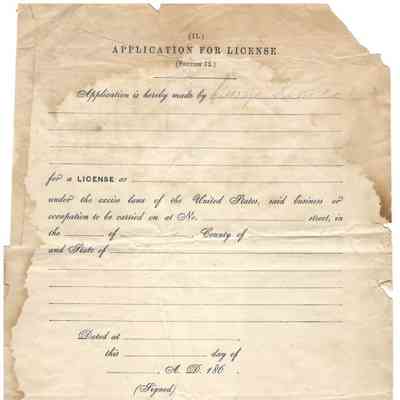 (II.)
APPLICATION FOR LICENSE.
(SECTION 12.)
Application is hereby made by
for a LICENSE as
under the excise laws of the United States, said business or
occupation to be carried on at No. street, in
the of County of
and State of
Dated at
this day of
, A. D. 186 .
(Signed)